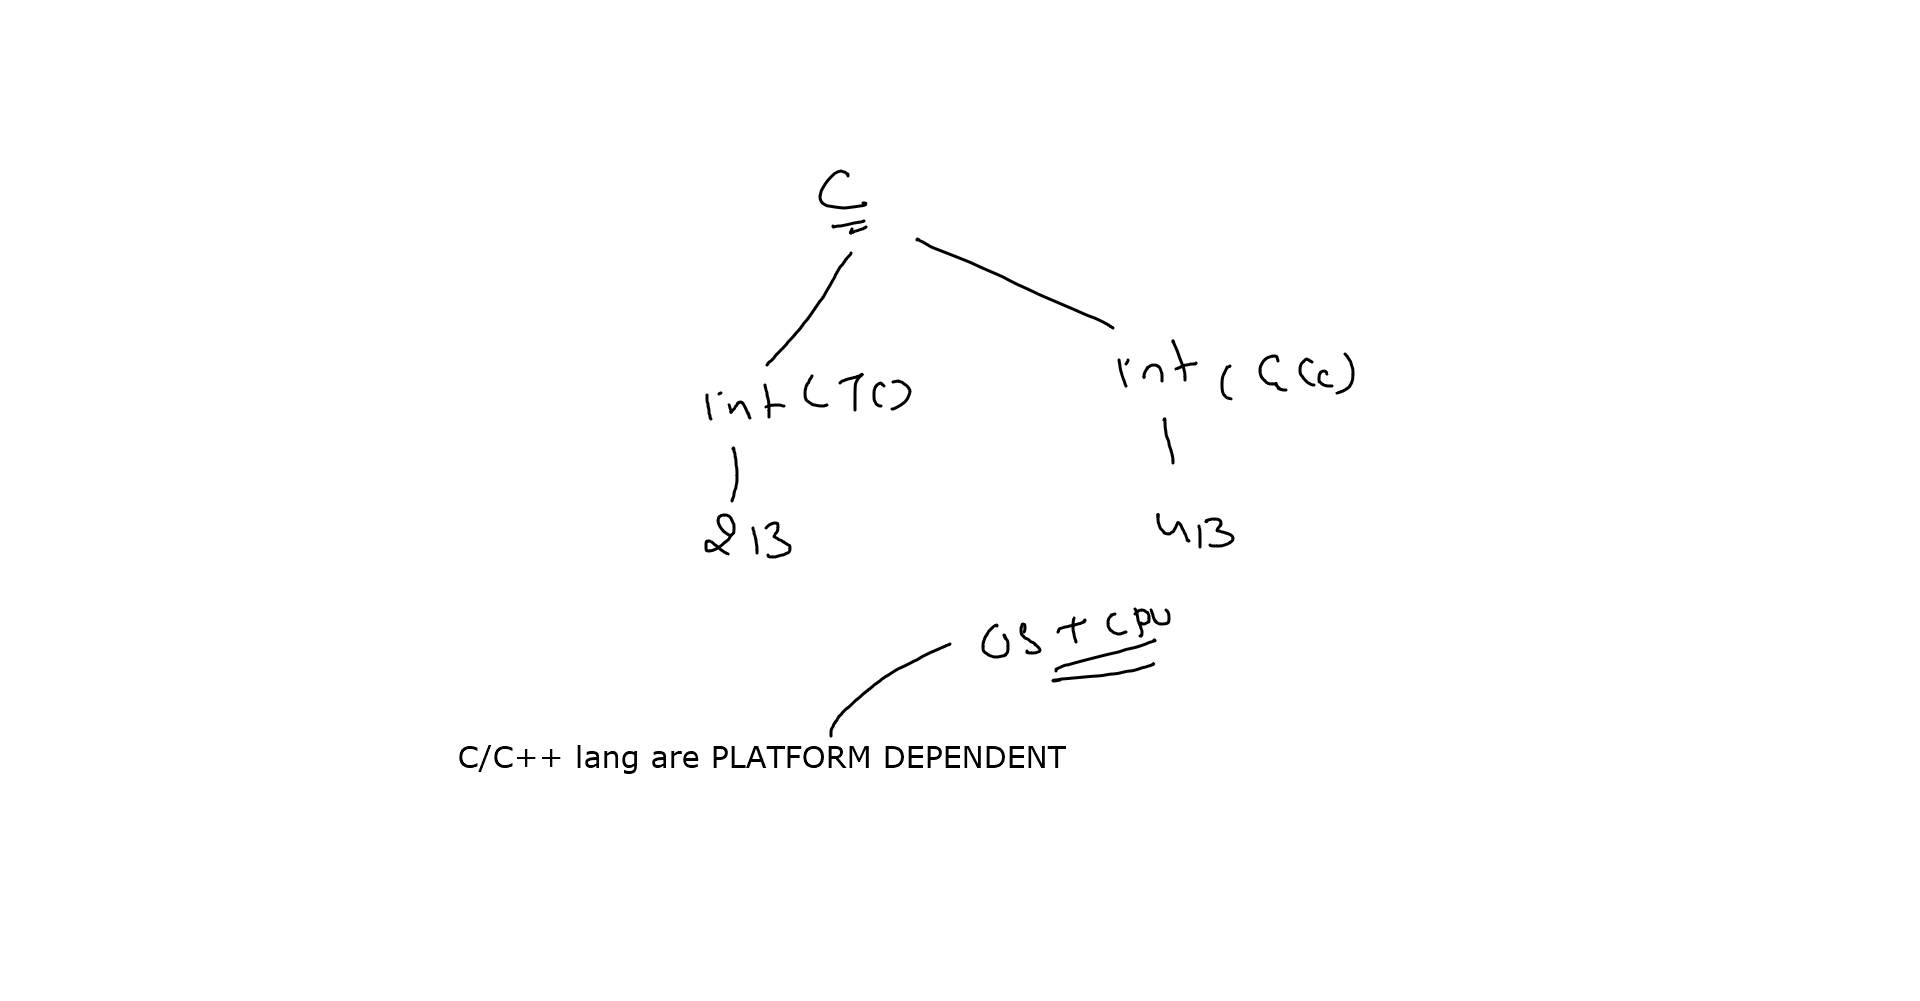 C
int (TC)
int (GCC)
2B
4B
OS + CPU
C/C++ lang are PLATFORM DEPENDENT